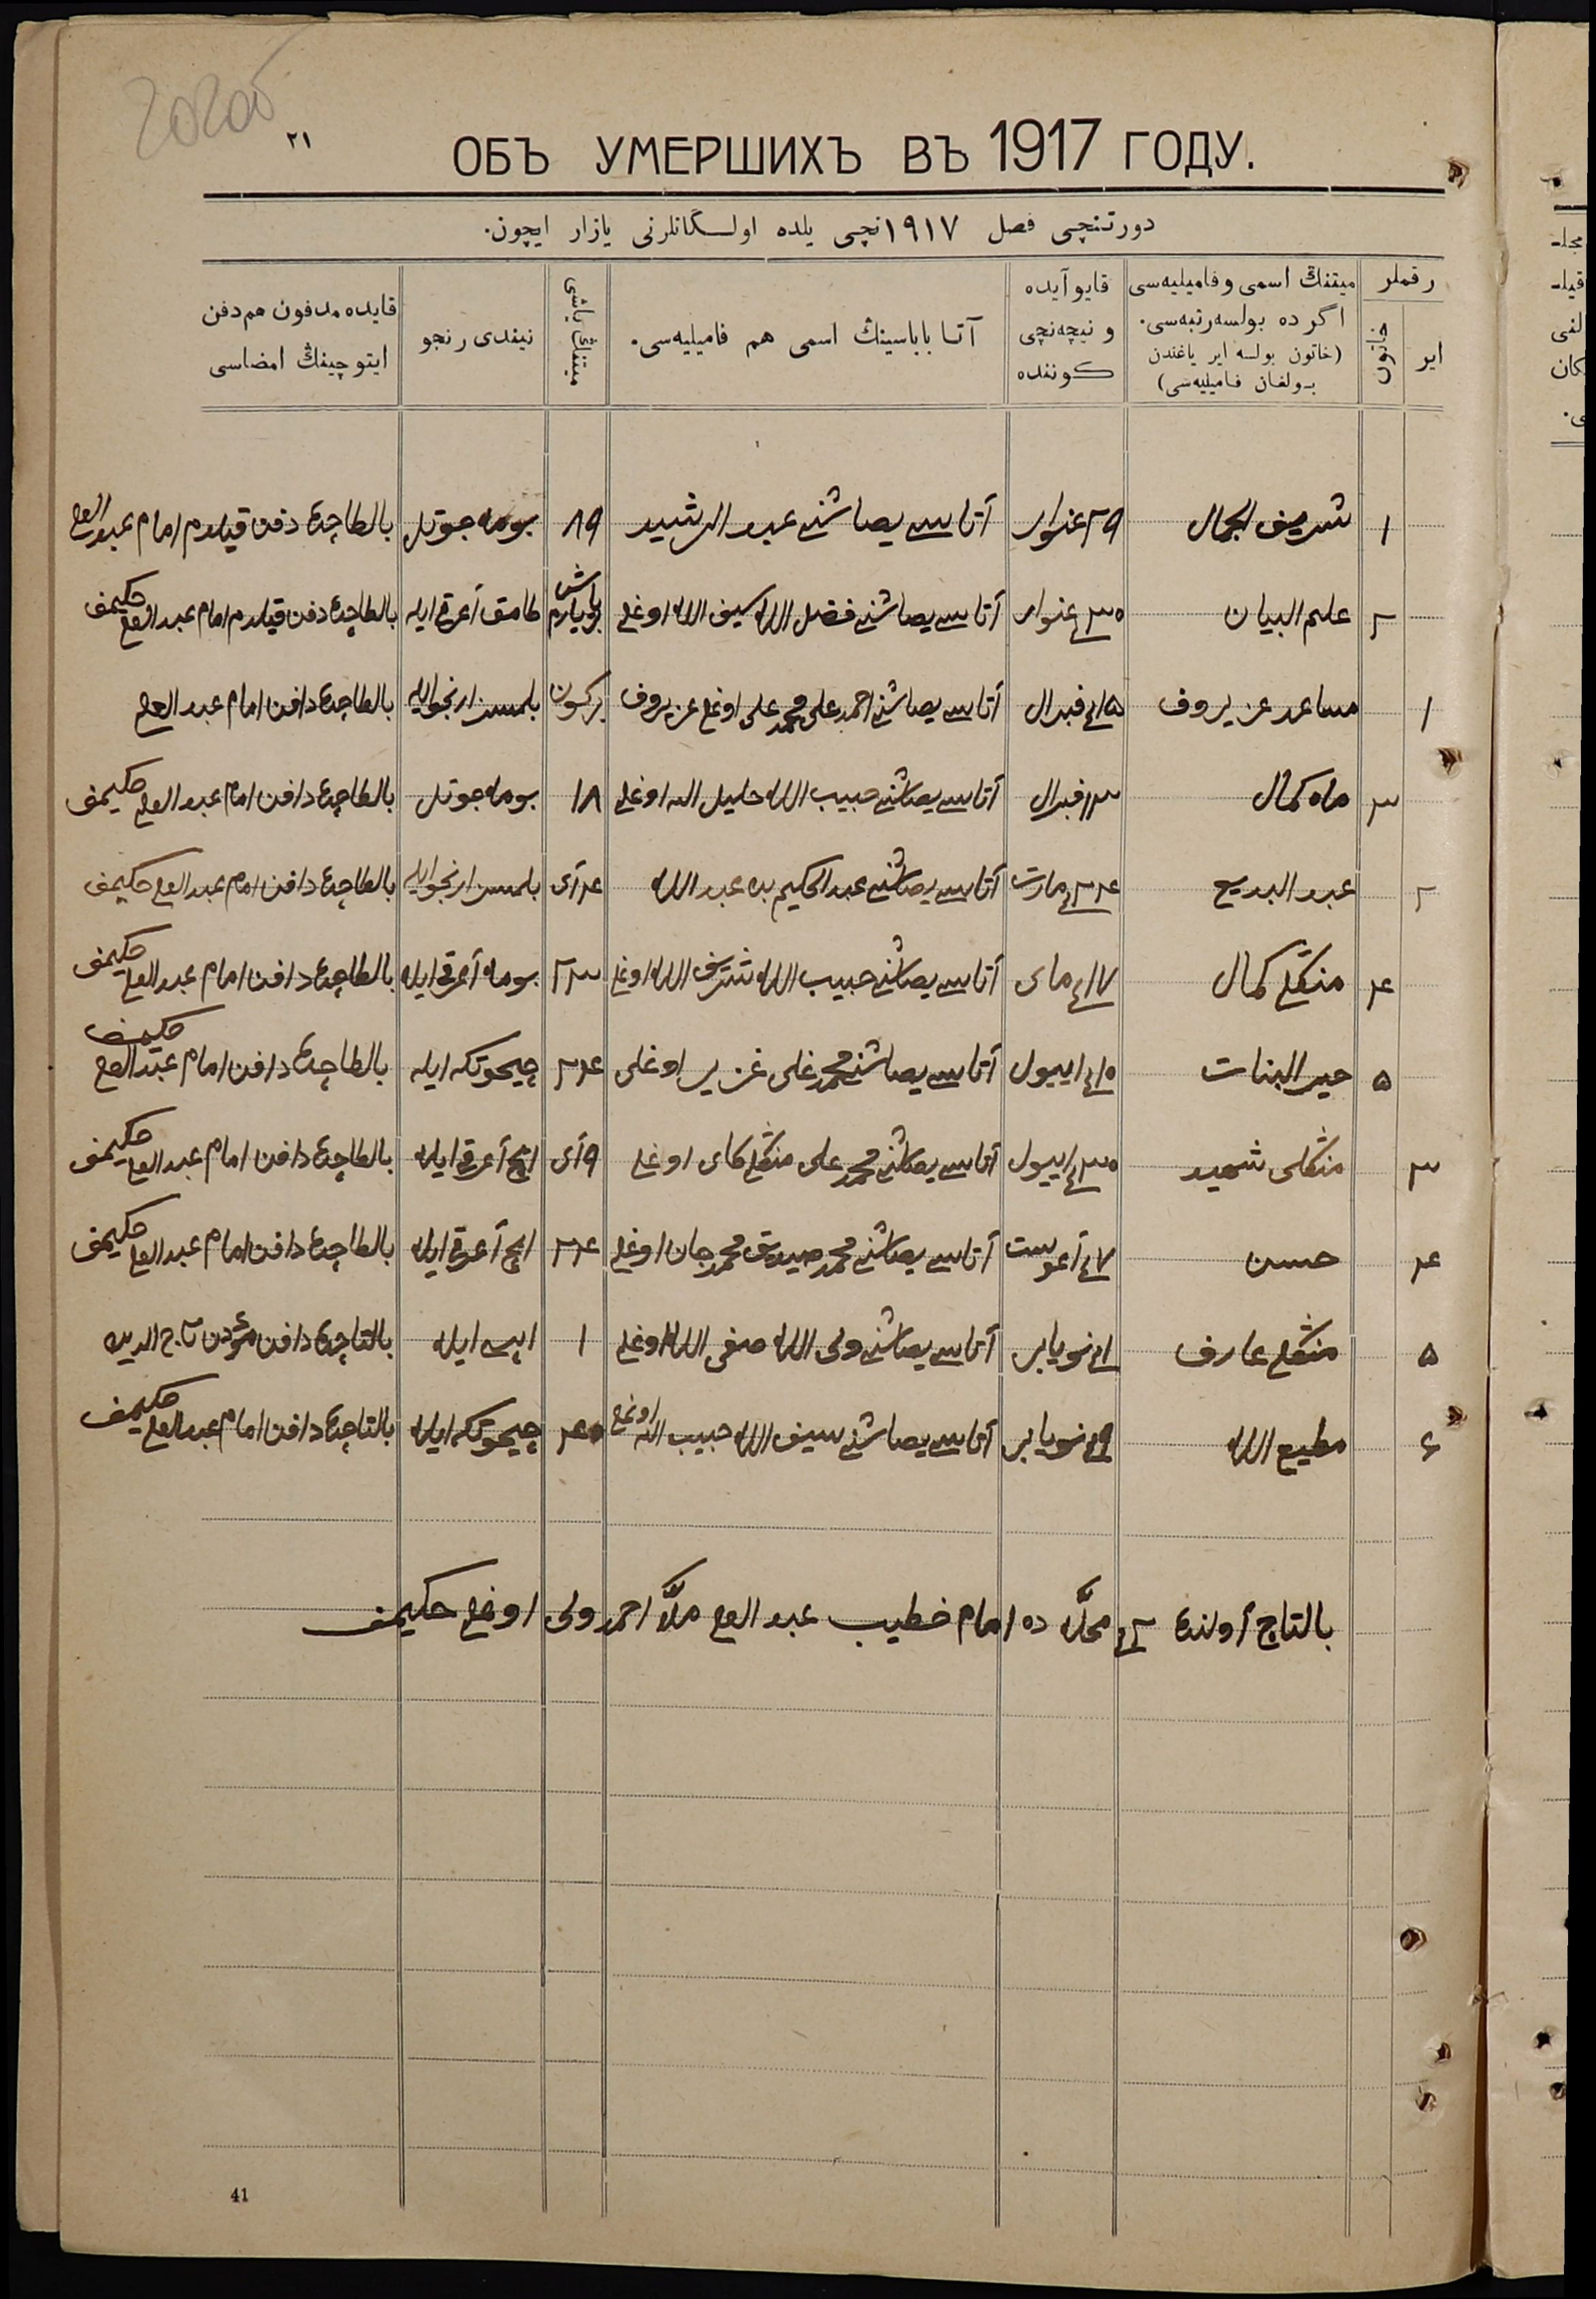 ۲۱
ОБЪ УМЕРШИХЪ ВЪ 1917 ГОДУ.
دورتنچی فصل ۱۹۱۷نچی یلده اولـگانلرنی یازار ایچون.
رقملر
ایر
خاتون
میتنڭ اسمی و فامیلیه‌سی
اگر ده بولسه رتبه‌سی.
(خاتون بولسه ایر یاغندن
بـولغان فامیلیه‌سی)
قایو آیده
و نیچه‌نچی
کوننده
آتـا باباسینڭ اسمی هم فامیلیه‌سی.
میتنڭ یاشی
نیندی رنجو
قایده مدفون هم دفن
ایتوچینڭ امضاسی
۱ شریف الجمال ۲۹ غنوار آتاسی یصاشنی عبد الرشید ۸۹ بوماه جوتل بالطاچده دفن قیلدم امام عبد العلی
۲ علم البیان ۳۰ غنوار آتاسی یصاشنی فضل الله سیف الله اوغلی طامق آغرقی ایله بالطاچده دفن قیلدم امام عبد العلی حکیمف
۱ مساعد عزیزوف ۱۵ فبرال آتاسی یصاشنی احمد علی محمد علی اوغلی عزیزوف بر کون بلمسز رنجو ایله بالطاچده دافن امام عبد العلی
۳ ماه کمال فبرال آتاسی یصاشنی حبیب الله خلیل الله اوغلی ۱۸ بوماه جوتل بالطاچده دافن امام عبد العلی حکیمف
۲ عبد البدیع ۲۴ مارت آتاسی یصاشنی عبد الحکیم بن عبد الله ۴ آی بلمسز رنجو ایله بالطاچده دافن امام عبد العلی حکیمف
۴ منکلی کمال ۱۷ مای آتاسی یصاشنی حبیب الله شریف الله اوغلی ۲۳ بوماه آغرقی ایله بالطاچده دافن امام عبد العلی حکیمف
۵ خیر البنات ۱۵ اییول آتاسی یصاشنی محمد علی عزیر اوغلی ۲۴ چیحوتکه ایله بالطاچده دافن امام عبد العلی حکیمف
۳ منکلی شهید ۳۰ اییول آتاسی یصاشنی محمد علی منکلی کای اوغلی ۹ آی ایچ آغرقی ایله بالطاچده دافن امام عبد العلی حکیمف
۴ حسن ۷ آغوست آتاسی یصاشنی محمد صدیق محمد جان اوغلی ۲۴ ایچ آغرقی ایله بالطاچده دافن امام عبد العلی حکیمف
۵ منکلی عارف ۱ نویابر آتاسی یصاشنی ولی الله صفی الله اوغلی ۱ ایله بالتاچده دافن مؤذن تاج الدین
۶ مطیع الله ۹ نویابر آتاسی یصاشنی سیف الله حبیب الله اوغلی ۴۵ چیحوتکه ایله بالتاچده دافن امام عبد العلی حکیمف
بالتاچ آولنده ۲ محله ده امام خطیب عبد العلی ملّا احمد ولی اوغلی حکیمف
41